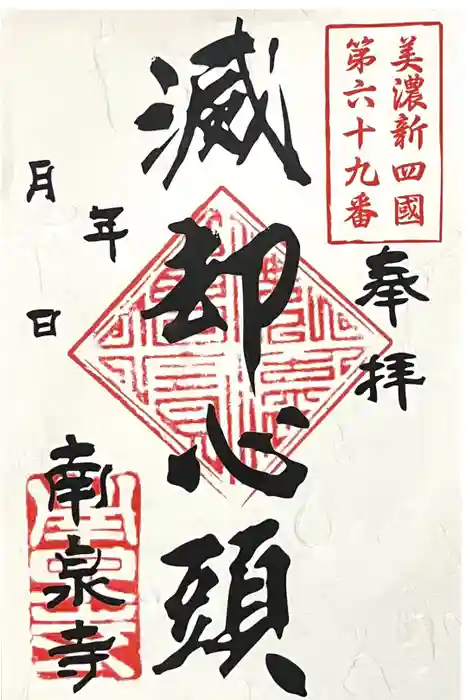 美濃新四國
第六十九番
奉拝
滅却心頭
年
月
日
南泉寺